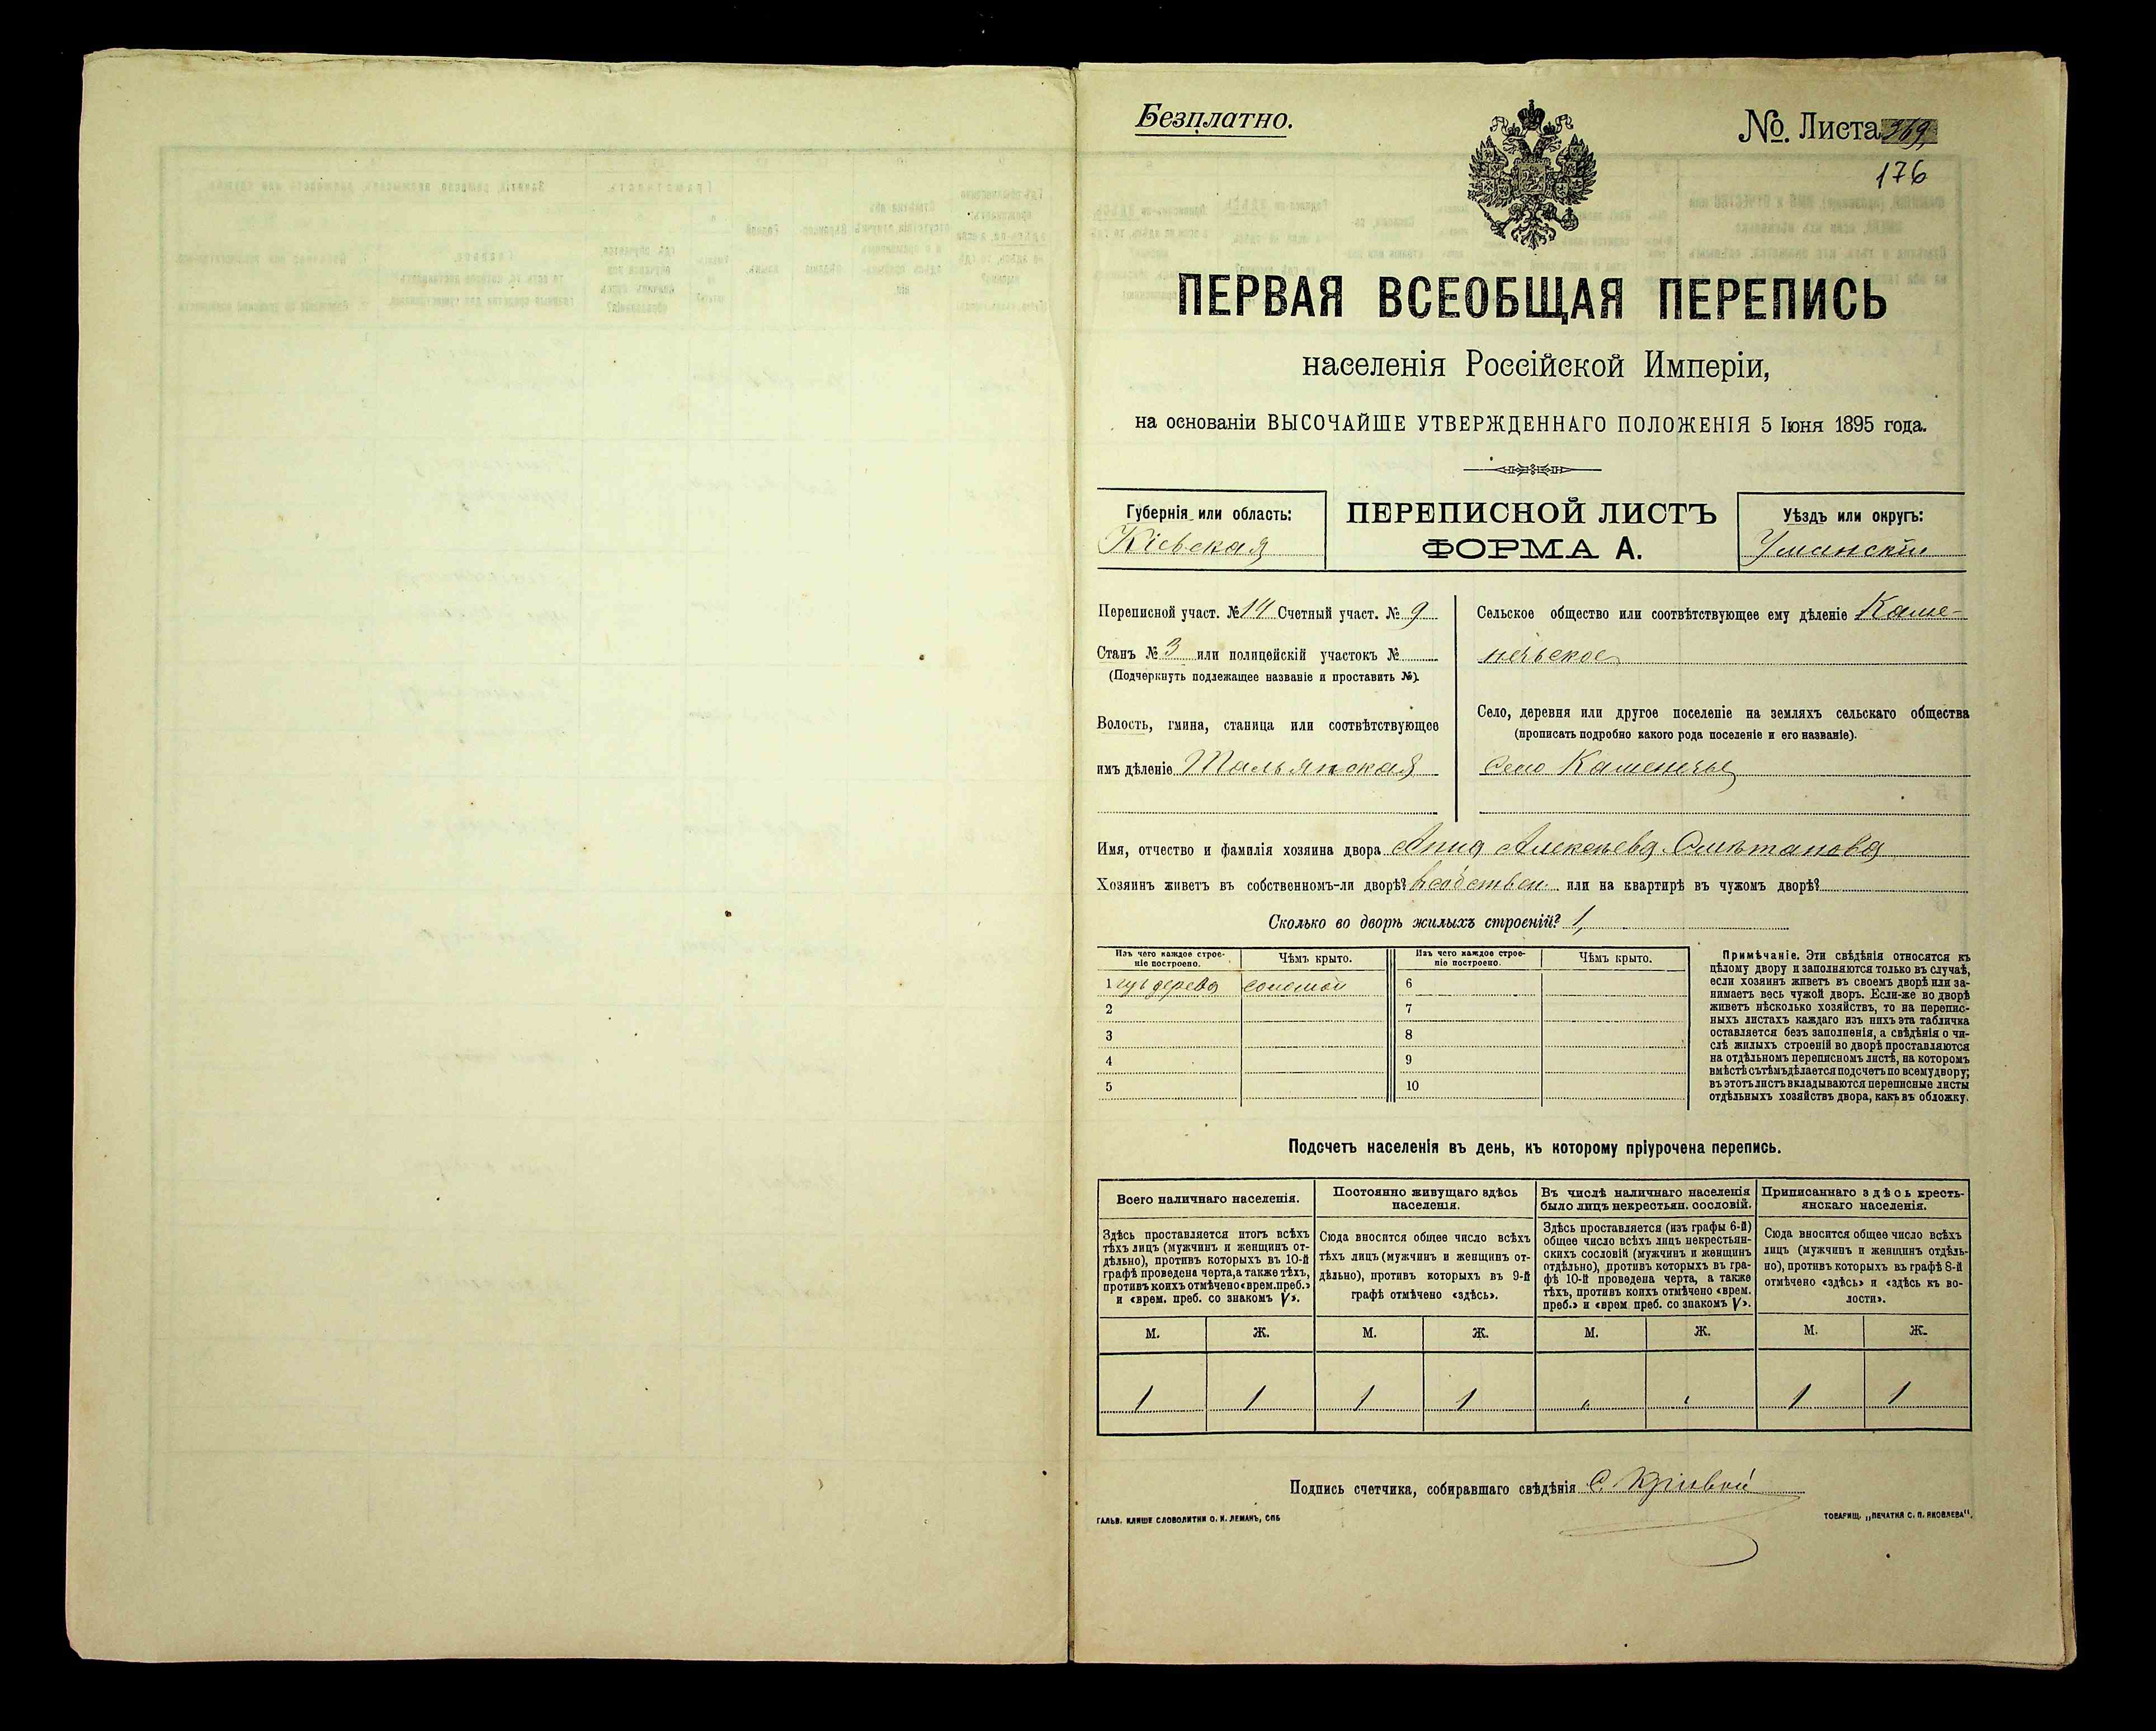 Безплатно.
№. Листа 369,
176
ПЕРВАЯ ВСЕОБЩАЯ ПЕРЕПИСЬ
населенія Россійской Имперіи,
на основаніи ВЫСОЧАЙШЕ УТВЕРЖДЕННАГО ПОЛОЖЕНІЯ 5 Іюня 1895 года.
Губернія или область:
Кіевская
ПЕРЕПИСНОЙ ЛИСТЪ
ФОРМА А.
Уѣздъ или округъ:
Уманскій
Переписной участ. № 14 Счетный участ. № 9
Станъ № 3 или полицейскій участокъ №
(Подчеркнуть подлежащее названіе и проставить №).
Волость, гмина, станица или соотвѣтствующее
имъ дѣленіе Тальянская
Сельское общество или соотвѣтствующее ему дѣленіе Каме-
нечьское
Село, деревня или другое поселеніе на земляхъ сельскаго общества
(прописать подробно какого рода поселеніе и его названіе).
Село Каменечье
Имя, отчество и фамилія хозяина двора Анна Алексѣева Смѣтанова
Хозяинъ живетъ въ собственномъ-ли дворѣ? в собствен. или на квартирѣ въ чужомъ дворѣ?
Сколько во дворѣ жилыхъ строеній? 1,
Изъ чего каждое строе-
ніе построено.
Чѣмъ крыто.
Изъ чего каждое строе-
ніе построено.
Чѣмъ крыто.
1 изъ дерева соломой 6
2 7
3 8
4 9
5 10
Примѣчаніе. Эти свѣдѣнія относятся къ
цѣлому двору и заполняются только въ случаѣ,
если хозяинъ живетъ въ своемъ дворѣ или за-
нимаетъ весь чужой дворъ. Если-же во дворѣ
живетъ нѣсколько хозяйствъ, то на перепис-
ныхъ листахъ каждаго изъ нихъ эта табличка
оставляется безъ заполненія, а свѣдѣнія о чи-
слѣ жилыхъ строеній во дворѣ проставляются
на отдѣльномъ переписномъ листѣ, на которомъ
вмѣстѣ съ тѣмъ дѣлается подсчетъ по всему двору;
въ этотъ листъ вкладываются переписные листы
отдѣльныхъ хозяйствъ двора, какъ въ обложку.
Подсчетъ населенія въ день, къ которому пріурочена перепись.
Всего наличнаго населенія.
Здѣсь проставляется итогъ всѣхъ
тѣхъ лицъ (мужчинъ и женщинъ от-
дѣльно), противъ которыхъ въ 10-й
графѣ проведена черта, а также тѣхъ,
противъ коихъ отмѣчено «врем. преб.»
и «врем. преб. со знакомъ V».
Постоянно живущаго здѣсь
населенія.
Сюда вносится общее число всѣхъ
тѣхъ лицъ (мужчинъ и женщинъ от-
дѣльно), противъ которыхъ въ 9-й
графѣ отмѣчено «здѣсь».
Въ числѣ наличнаго населенія
было лицъ некрестьян. сословій.
Здѣсь проставляется (изъ графы 6-й)
общее число всѣхъ лицъ некрестьян-
скихъ сословій (мужчинъ и женщинъ
отдѣльно), противъ которыхъ въ гра-
фѣ 10-й проведена черта, а также
тѣхъ, противъ коихъ отмѣчено «врем.
преб.» и «врем преб. со знакомъ V».
Приписаннаго здѣсь кресть-
янскаго населенія.
Сюда вносится общее число всѣхъ
лицъ (мужчинъ и женщинъ отдѣль-
но), противъ которыхъ въ графѣ 8-й
отмѣчено «здѣсь» и «здѣсь къ во-
лости».
М. Ж. М. Ж. М. Ж. М. Ж.
1 1 1 1 „ „ 1 1
Подпись счетчика, собиравшаго свѣдѣнія С.
ГАЛЬВ. КЛИШЕ СЛОВОЛИТНИ О. И. ЛЕМАНЪ, СПБ
ТОВАРИЩ. „ПЕЧАТНЯ С. П. ЯКОВЛЕВА".